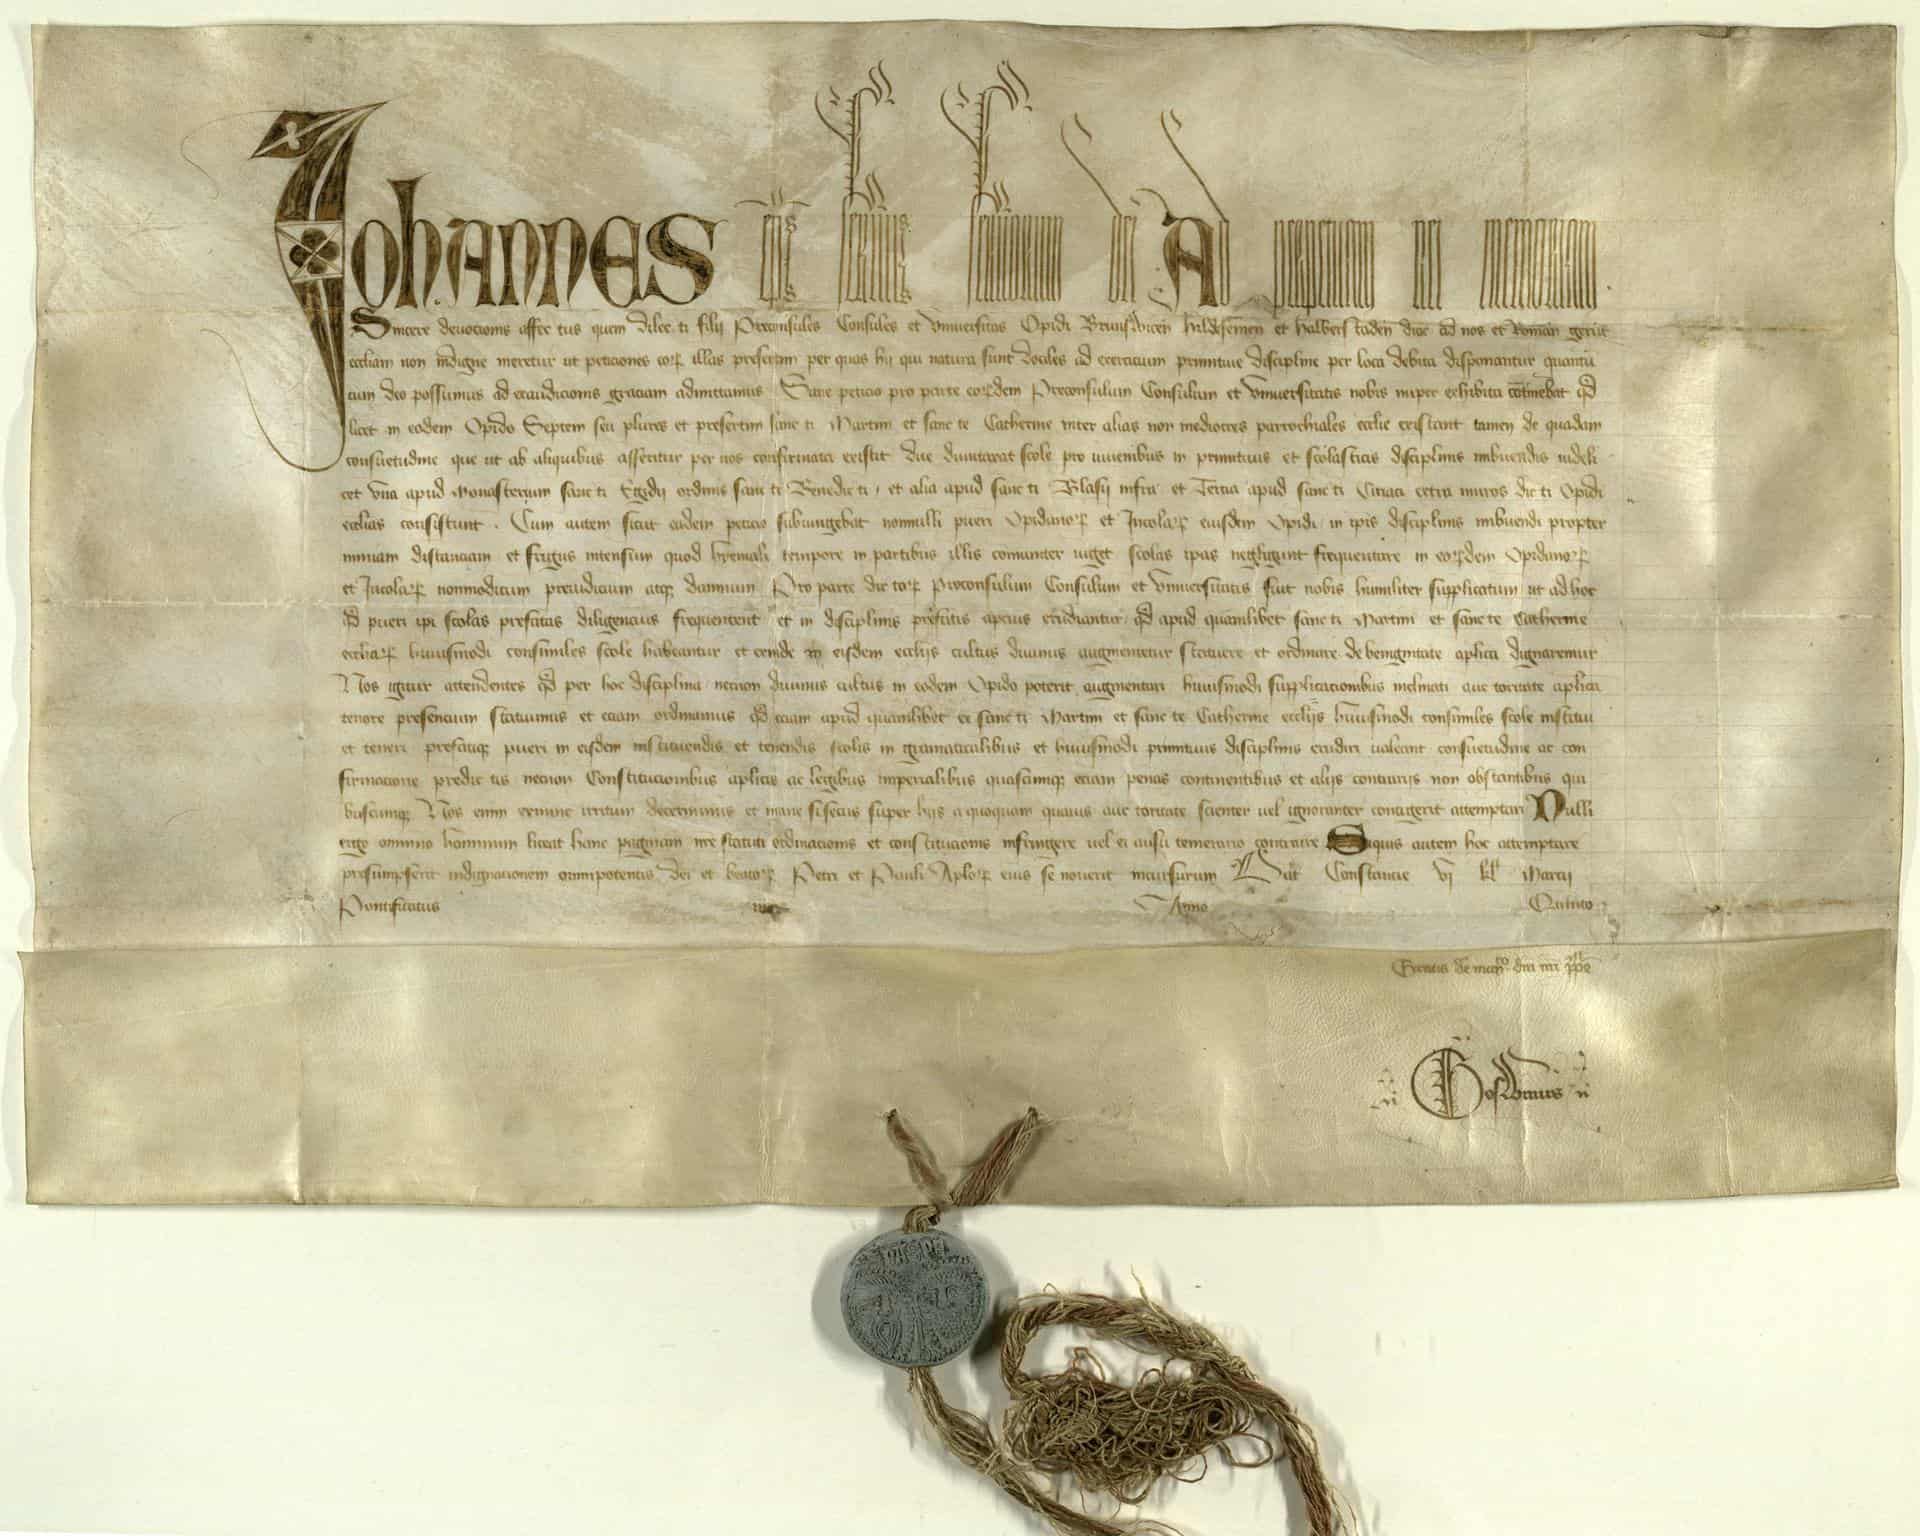 Johannes ep̄s seruus seruorum dei Ad perpetuam rei memoriam
Sincere deuocionis affectus quem dilecti filij Proconsules Consules et Vniuersitas Opidi Brunswicen̄ hildesemen̄ et halberstaden̄ dioc̄ ad nos et Roman̄ gerūt
eccliam non indigne meretur ut peticiones eoꝝ illas presertim per quas hij qui natura sunt dociles ad exercicium primitiue discipline per loca debita disponantur quantū
cum deo possumus ad exaudicionis graciam admittamus Sane peticio pro parte eoꝝdem Proconsulum Consulum et Vniuersitatis nobis nuper exhibita cōtinebat qd̄
licet in eodem Opido Septem seu plures et presertim sancti Martini et sancte Catherine inter alias non mediocres parrochiales ecclie existant tamen de quadam
consuetudine que ut ab aliquibus asseritur per nos confirmata existit due dumtaxat scole pro iuuenibus in primitiuis et scolasticis disciplinis imbuendis uideli
cet vna apud Monasterium sancti Egidij ordinis sancti Benedicti et alia apud sancti Blasij infra et Tercia apud sancti Ciriaci extra muros dicti Opidi
ecclias consistunt. Cum autem sicut eadem peticio subiungebat nonnulli pueri Opidanoꝝ et Incolaꝝ eiusdem Opidi in ip̄is disciplinis imbuendi propter
nimiam distanciam et frigus intensum quod hyemali tempore in partibus illis comuniter uiget scolas ip̄as negligunt frequentare in eoꝝdem Opidanoꝝ
et Incolaꝝ nonmodicum preiudicium atqꝫ dampnum Pro parte dictoꝝ Proconsulum Consulum et Vniuersitatis fuit nobis humiliter supplicatum ut ad hoc
qd̄ pueri ip̄i scolas prefatas diligencius frequentent et in disciplinis prefatis apcius erudiantur qd̄ apud quamlibet sancti Martini et sancte Catherine
eccliaꝝ huiusmodi consimiles scole habeantur et exinde in eisdem ecclijs cultus diuinus augmentetur statuere et ordinare de benignitate aplica dignaremur
Nos igitur attendentes qd̄ per hoc disciplina necnon diuinus cultus in eodem Opido poterit augmentari huiusmodi supplicacionibus inclinati auctoritate aplica
tenore presencium statuimus et eciam ordinamus qd̄ eciam apud quamlibet ex sancti Martini et sancte Catherine ecclijs huiusmodi consimiles scole institui
et teneri prefatiqꝫ pueri in eisdem instituendis et tenendis scolis in gramaticalibus et huiusmodi primitiuis disciplinis erudiri ualeant consuetudine ac con
firmacione predictis necnon Constitucionibus aplicis ac legibus imperialibus quascumqꝫ eciam penas continentibus et alijs contrarijs non obstantibus qui
buscumqꝫ Nos enim exnunc irritum decernimus et inane si secus super hijs a quoquam quauis auctoritate scienter uel ignoranter contigerit attemptari Nulli
ergo omnino hominum liceat hanc paginam nr̄e statuti ordinacionis et constitucionis infringere uel ei ausu temerario contraire Siquis autem hoc attemptare
presumpserit indignacionem omnipotentis dei et beatoꝝ Petri et Pauli Aploꝝ eius se nouerit incursurum Dat̄ Constancie vj kl̄ Marcij
Pontificatus nr̄i Anno Quinto
Gratis de man̄to dn̄i nr̄i pp̄e